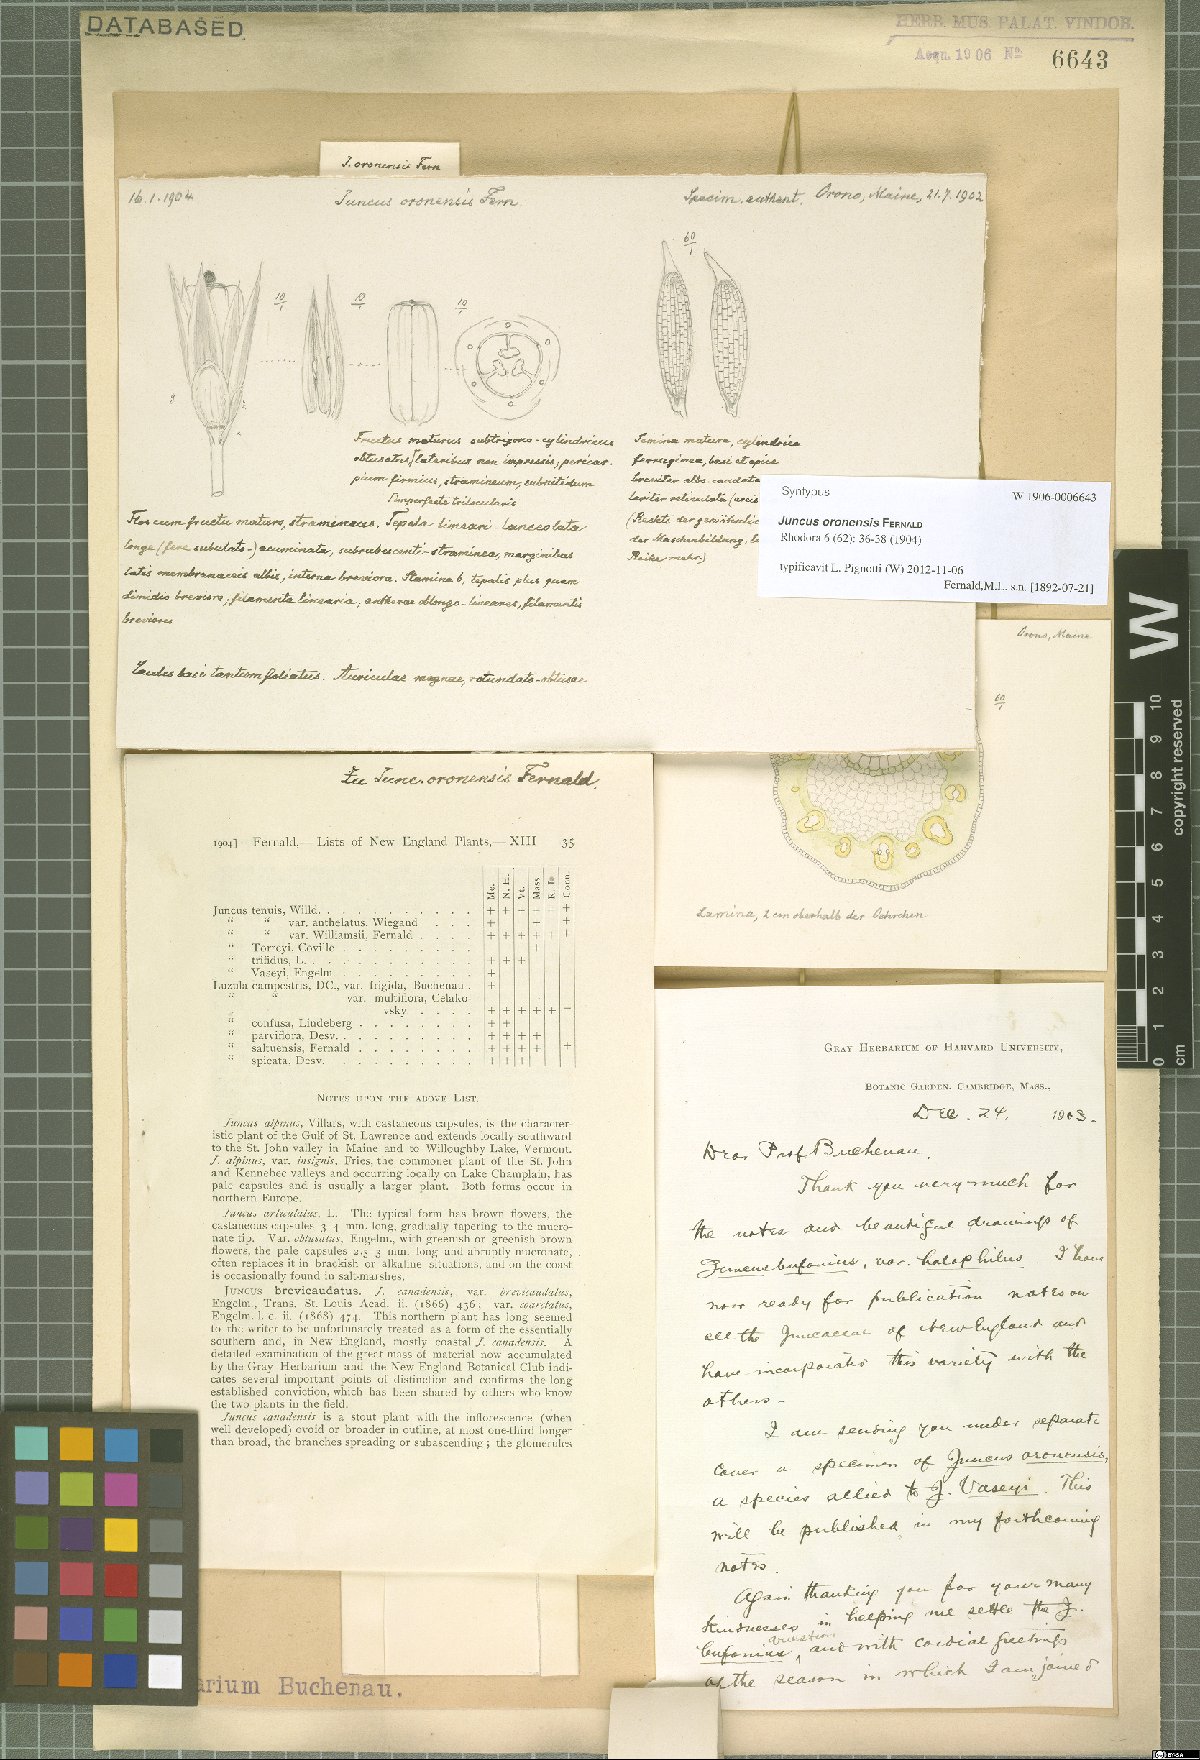 DATABASED
HERB. MUS. PALAT. VINDOB.
Acqu. 1906 No
6643
J. oronensis Fern
16.1.1904
Juncus oronensis Fern
Specim. authent. Orono, Maine, 21.7.1902
10/1
10/1
10/1
60/1
Fructus maturus subtrigono-cylindricus
obtusatus, lateribus non impressis; pericar-
pium firmius, stramineum, subnitidum
imperfecte triloculare
Semina matura, cylindrica
ferruginea, basi et apice
breviter albo-caudata
loriter reticulata
(Reste der gewöhnlic
der Maschenbildung,
Reihe mehr.)
Flos cum fructu maturo, stramineus. Tepala lineari-lanceolata
longe (fere subulato-) acuminata, subrubescenti-straminea, marginibus
latis membranaceis albis, interna breviora. Stamina 6, tepalis plus quam
dimidio breviora; filamenta linearia, antherae oblongo-lineares, filamentis
breviores
Caules basi tantum foliatus. Auriculae magnae, rotundato-obtusae
Syntypus
W 1906-0006643
Juncus oronensis FERNALD
Rhodora 6 (62): 36-38 (1904)
typificavit L. Pignotti (W) 2012-11-06
Fernald,M.L. s.n. [1892-07-21]
Orono, Maine
60/1
Lamina, 2 cm oberhalb der Oehrchen
Zu Junc. oronensis Fernald.
1904] Fernald,—Lists of New England Plants,—XIII 35
Me. N. H. Vt. Mass. R. I. Conn.
Juncus tenuis, Willd. . . . . . . . . . . .
" " var. anthelatus, Wiegand . . . .
" " var. Williamsii, Fernald . . . . .
" Torreyi, Coville . . . . . . . . . .
" trifidus, L. . . . . . . . . . . . .
" Vaseyi, Engelm. . . . . . . . . . .
Luzula campestris, DC., var. frigida, Buchenau .
" " var. multiflora, Celako
vsky . . . . .
" confusa, Lindeberg . . . . . . . .
" parviflora, Desv. . . . . . . . . . .
" saltuensis, Fernald . . . . . . . .
" spicata, Desv. . . . . . . . . . . .
NOTES UPON THE ABOVE LIST.
Juncus alpinus, Villars, with castaneous capsules, is the character-
istic plant of the Gulf of St. Lawrence and extends locally southward
to the St. John valley in Maine and to Willoughby Lake, Vermont.
J. alpinus, var. insignis, Fries, the commoner plant of the St. John
and Kennebec valleys and occurring locally on Lake Champlain, has
pale capsules and is usually a larger plant. Both forms occur in
northern Europe.
Juncus articulatus, L. The typical form has brown flowers, the
castaneous capsules 3-4 mm. long, gradually tapering to the mucro-
nate tip. Var. obtusatus, Engelm., with greenish or greenish brown
flowers, the pale capsules 2.5-3 mm. long and abruptly mucronate,
often replaces it in brackish or alkaline situations, and on the coast
is occasionally found in salt-marshes.
JUNCUS brevicaudatus. J. canadensis, var. brevicaudatus,
Engelm., Trans. St. Louis Acad. ii. (1866) 436; var. coarctatus,
Engelm. l. c. ii. (1868) 474. This northern plant has long seemed
to the writer to be unfortunately treated as a form of the essentially
southern and, in New England, mostly coastal J. canadensis. A
detailed examination of the great mass of material now accumulated
by the Gray Herbarium and the New England Botanical Club indi-
cates several important points of distinction and confirms the long
established conviction, which has been shared by others who know
the two plants in the field.
Juncus canadensis is a stout plant with the inflorescence (when
well developed) ovoid or broader in outline, at most one-third longer
than broad, the branches spreading or subascending; the glomerules
GRAY HERBARIUM OF HARVARD UNIVERSITY,
BOTANIC GARDEN, CAMBRIDGE, MASS.,
Dec. 24. 1903.
Dear Prof. Buchenau,
Thank you very much for
the notes and beautiful drawings of
Juncus bufonius, var. halophilus. I have
now ready for publication notes on
all the Juncaceae of New England and
have incorporated this variety with the
others.
I am sending you under separate
cover a specimen of Juncus oronensis,
a species allied to J. Vaseyi. This
will be published in my forthcoming
notes.
Again thanking you for your many
kindnesses in helping me settle the J.
bufonius variation, and with cordial greetings
of the season in which I am joined
arium Buchenau.
W
0 1 2 3 4 5 6 7 8 9 10
cm
copyright reserved